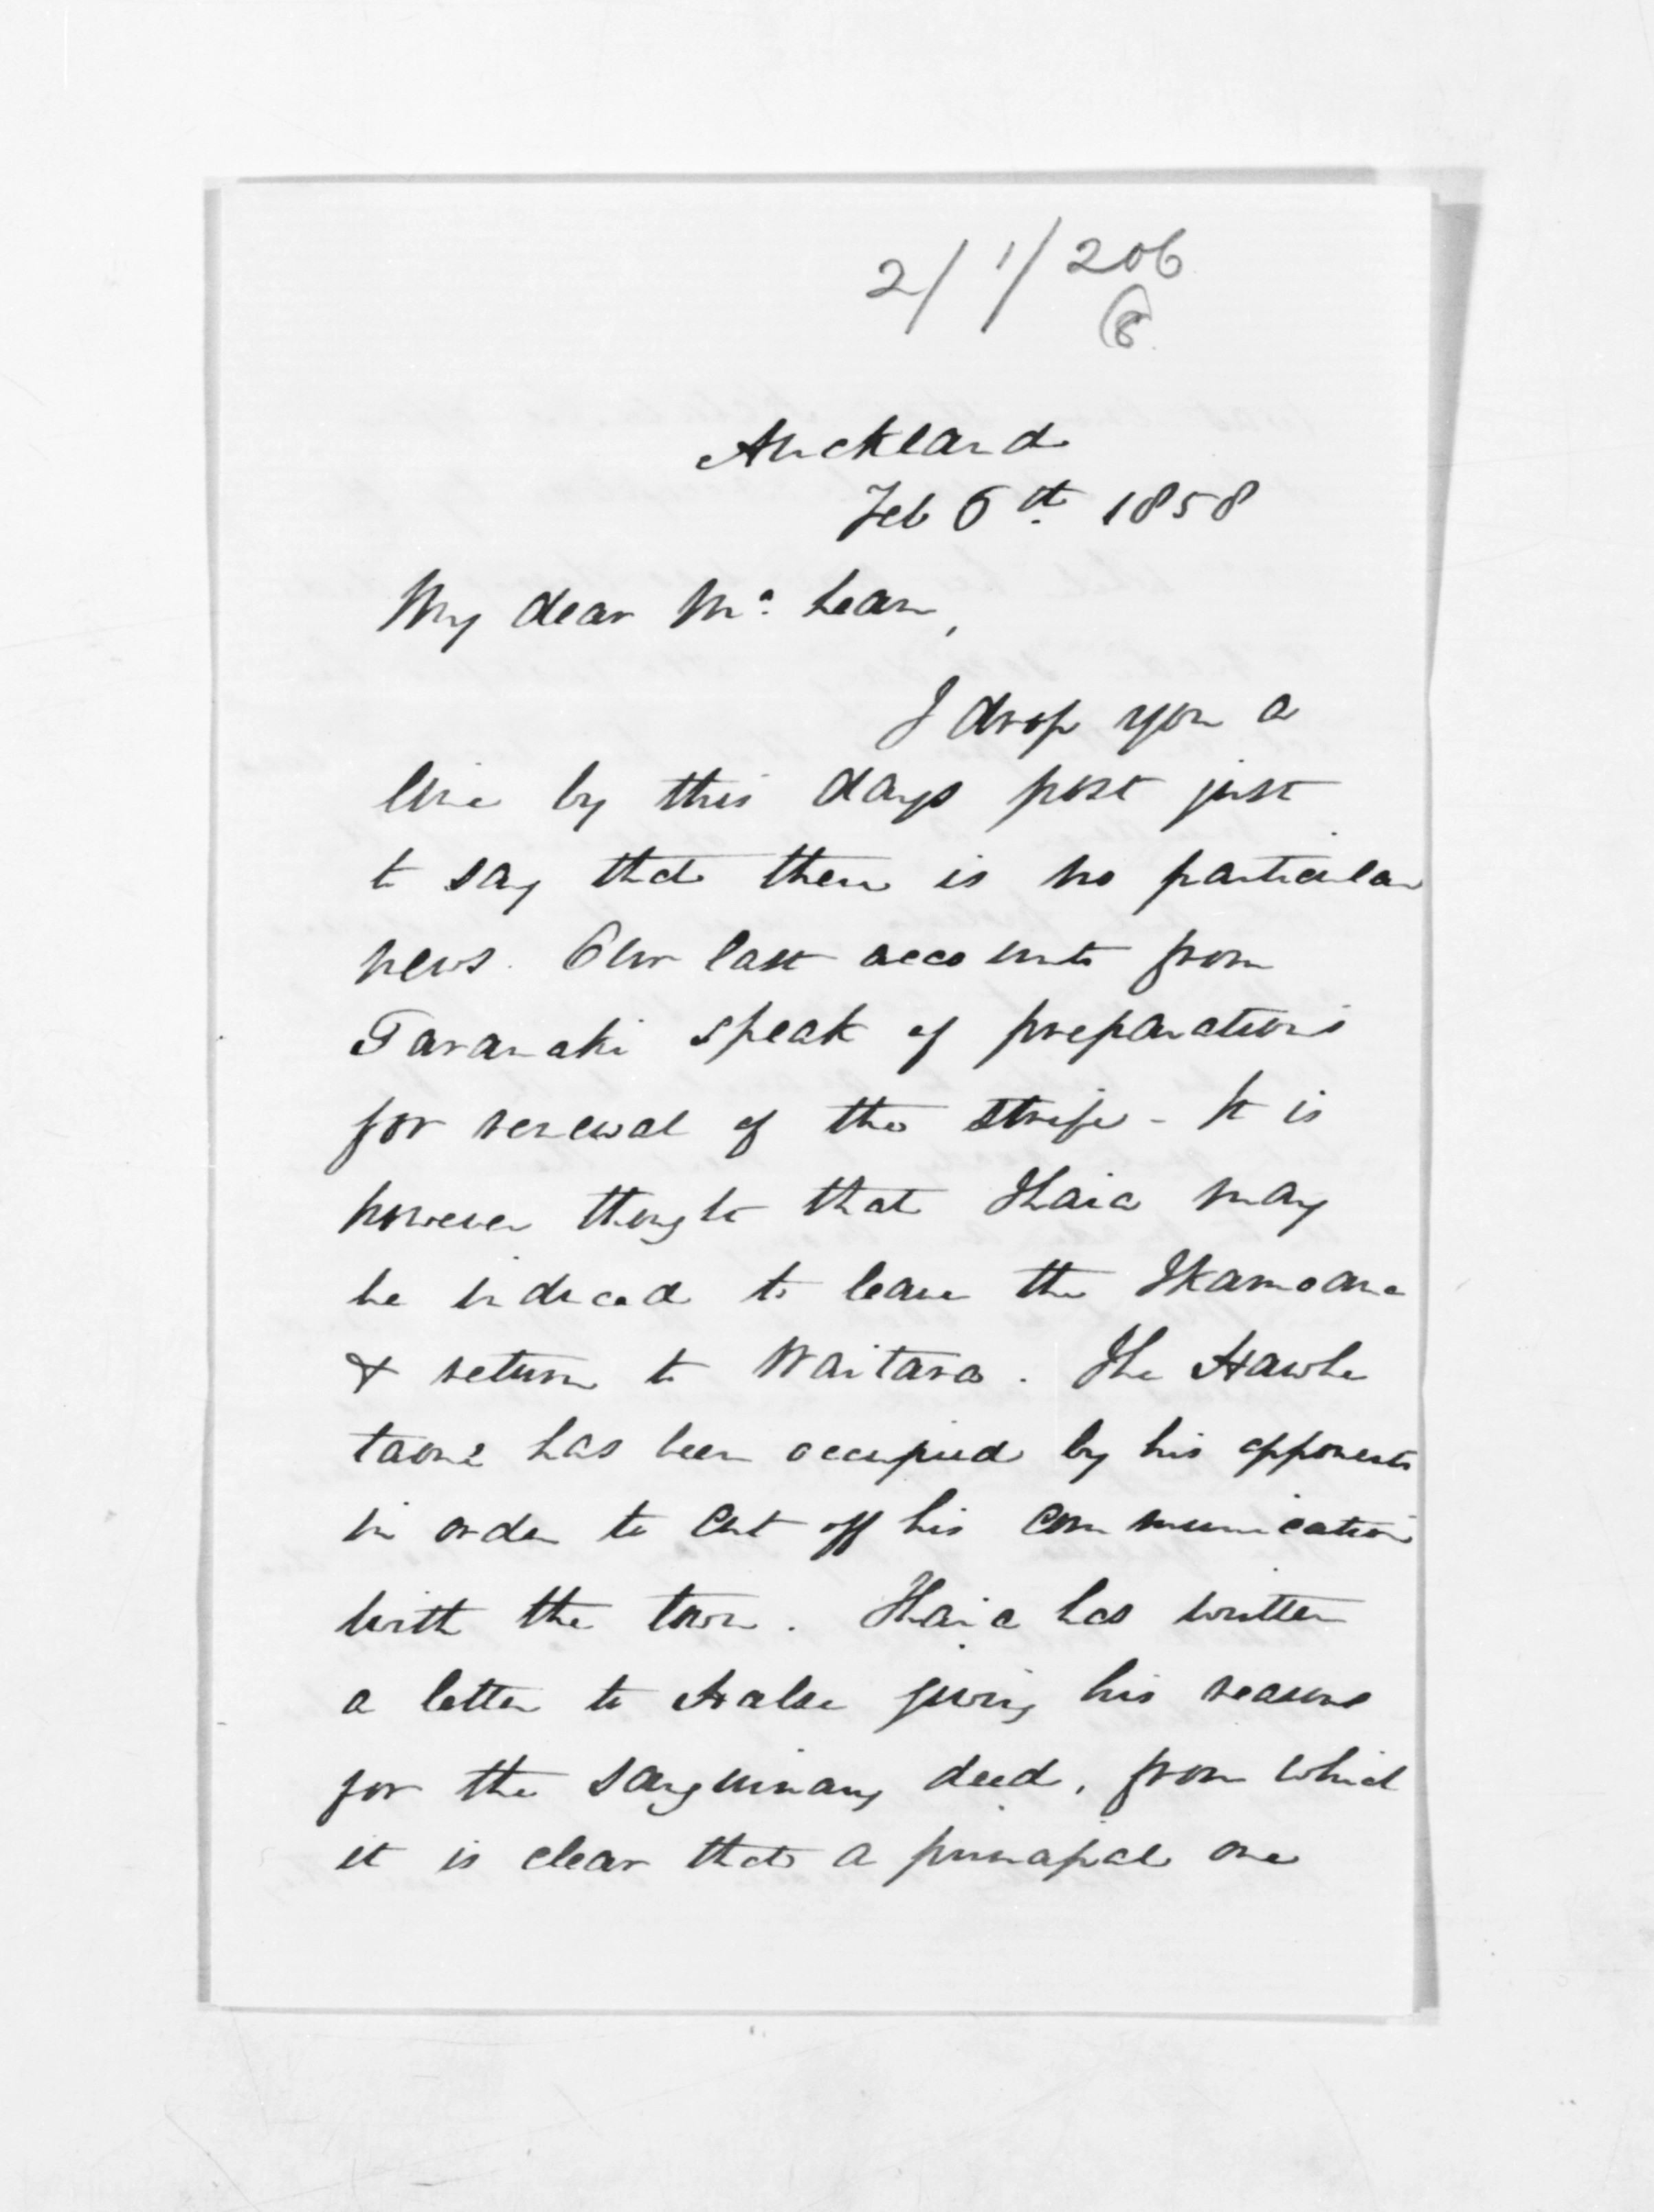 2/1/206
8
Auckland
Feb 6th. 1858
My dear Mc. Lean,
I drop you a
line by this days post just
to say that there is no particular
news. Our last accounts from
Taranaki speak of preparations
for renewal of the strife - It is
however thought that Ihaia may
be induced to leave the Ikamoana
& return to Waitara. The Hawhe
taone has been occupied by his opponents
in order to cut off his communication
with the town. Ihaia has written
a letter to Halse giving his reasons
for the sanguinary deed, from which
it is clear that a principal one